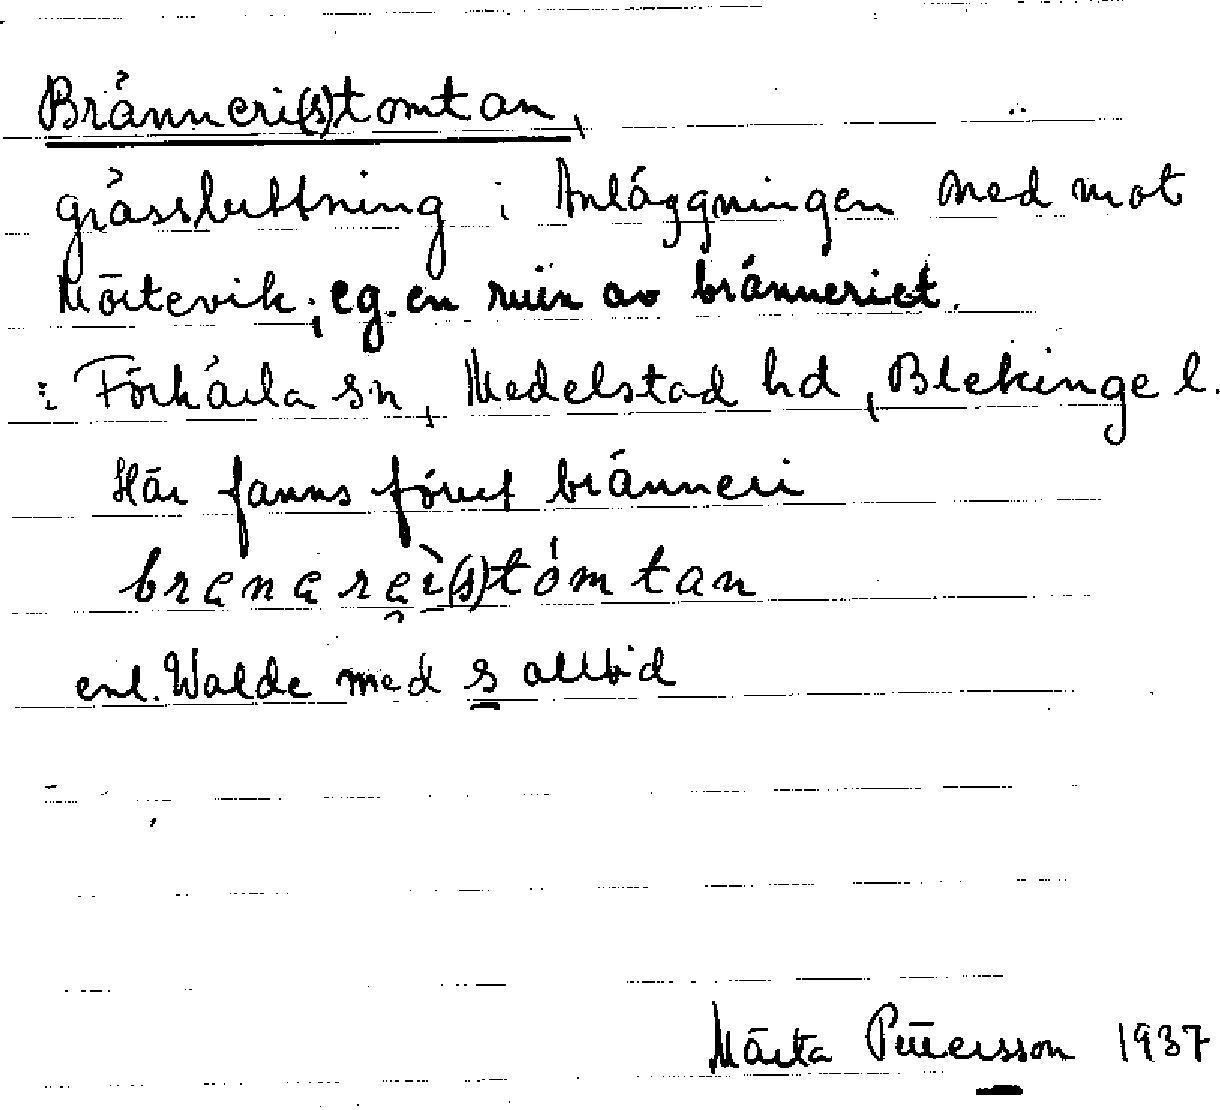 Bränneri(s)tomtan,
grässluttning i Anläggningen ned mot
Mörtevik; eg. en ruin av bränneriet.
i Förkärla sn, Medelstad hd, Blekinge l.
Här fanns förut bränneri
enl. Walde med s alltid
Märta Petersson 1937